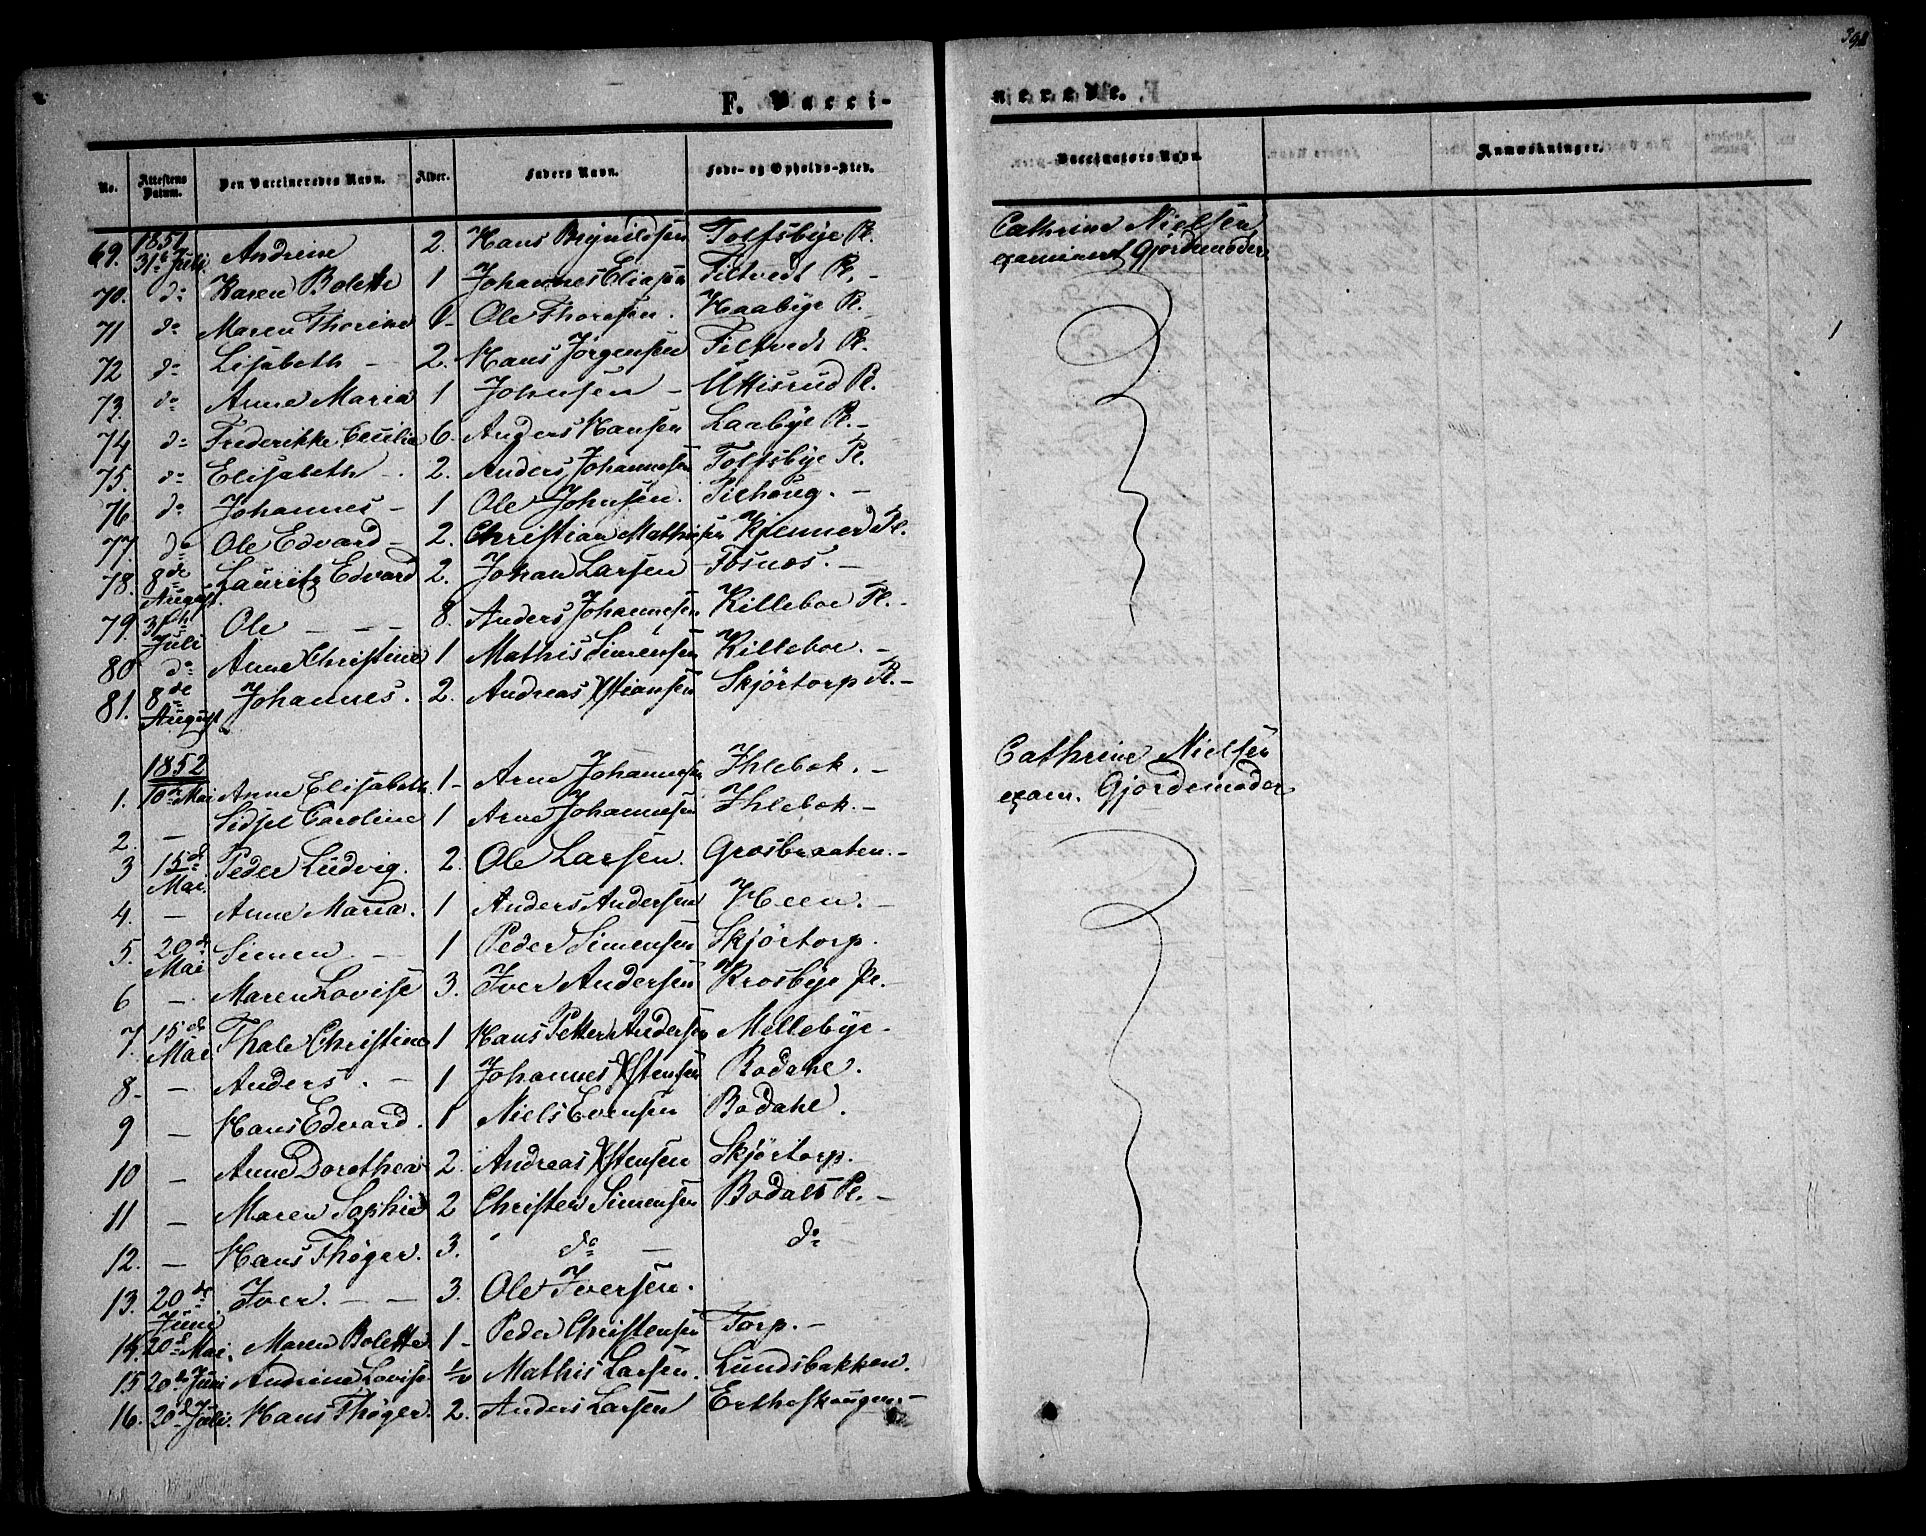 398
F. Vacci-
nerede.
No. Attestens Datum. Den Vaccineredes Navn. Alder. Faders Navn. Føde- og Opholds-Sted. Vaccinators Navn. Anmærkninger.
1851
69. 31te Juli Andrine 2. Hans Brynildsen Tolfsbye Pl. Cathrine Nielsen
examineret Gjordemoder
70. do Karen Bolette 1 Johannes Eliasen Tiltvedt Pl. -
71 do Maren Thorine Ole Thoresen. Haabye Pl. -
72 do Lisabeth - 2. Hans Jørgensen Tiltvedt Pl.
73. do Anne Maria 1 Johnsen - Uttisrud Pl.
74 do Frederikke Cecilie 6. Anders Hansen Laabye Pl. -
75. do Elisabeth - 2. Anders Johannesen Tolfsbye Pl.
76 do Johannes - 1 Ole Johnsen. Tilhoug. -
77. do Ole Edvard - 2. Christian Mathisen Kjenner Pl.
78. 8de August. Lauritz Edvard 2. Johan Larsen Tosnæs. -
79. 31te Juli Ole - - - 8. Anders Johannesen Killeboe Pl. -
80 do Anne Christine 1 Mathis Simensen Killeboe. -
81. 8de August Johannes. 2. Andreas Xstiansen Skjørtorp Pl. -
1852
1. 10de Mai Anne Elisabeth 1- Arne Johannesen Ihlebek. - Cathrine Nielsen
exam. Gjordemoder
2. - Sidsel Caroline 1 Arne Johannesen Ihlebek. -
3 15de Mai. Peder Ludvig. 2. Ole Larsen. Grosbraaten. -
4. - Anne Maria. 1 Anders Andersen Heen. -
5. 20de Mai Simen. - 1 Peder Simensen Skjørtorp.
6 - Maren Lovise 3. Iver Andersen Krosbye Pl. -
7. 15de Mai. Thale Christine 1 Hans Petter Andersen Mellebye -
8. - Anders. - 1 Johannes Xstensen Bodahl.
9 - Hans Edvard. 1 Niels Evensen Bodahl.
10 - Anne Dorothea 2. Andreas Xstensen Skjørtorp.
11 - Maren Sophie 2 Christen Simensen Bodals Pl. -
12. - Hans Thøger. 3. do - do
13. 20de Juni Iver. - - 3. Ole Iversen.
14. 20de Mai. Maren Bolette 1- Peder Christensen Torp. -
15 20de Juni Andrine Lovise 1/2 Mathis Larsen. Lundsbakken.
16. 20de Juli. Hans Thøger. 2. Anders Larsen